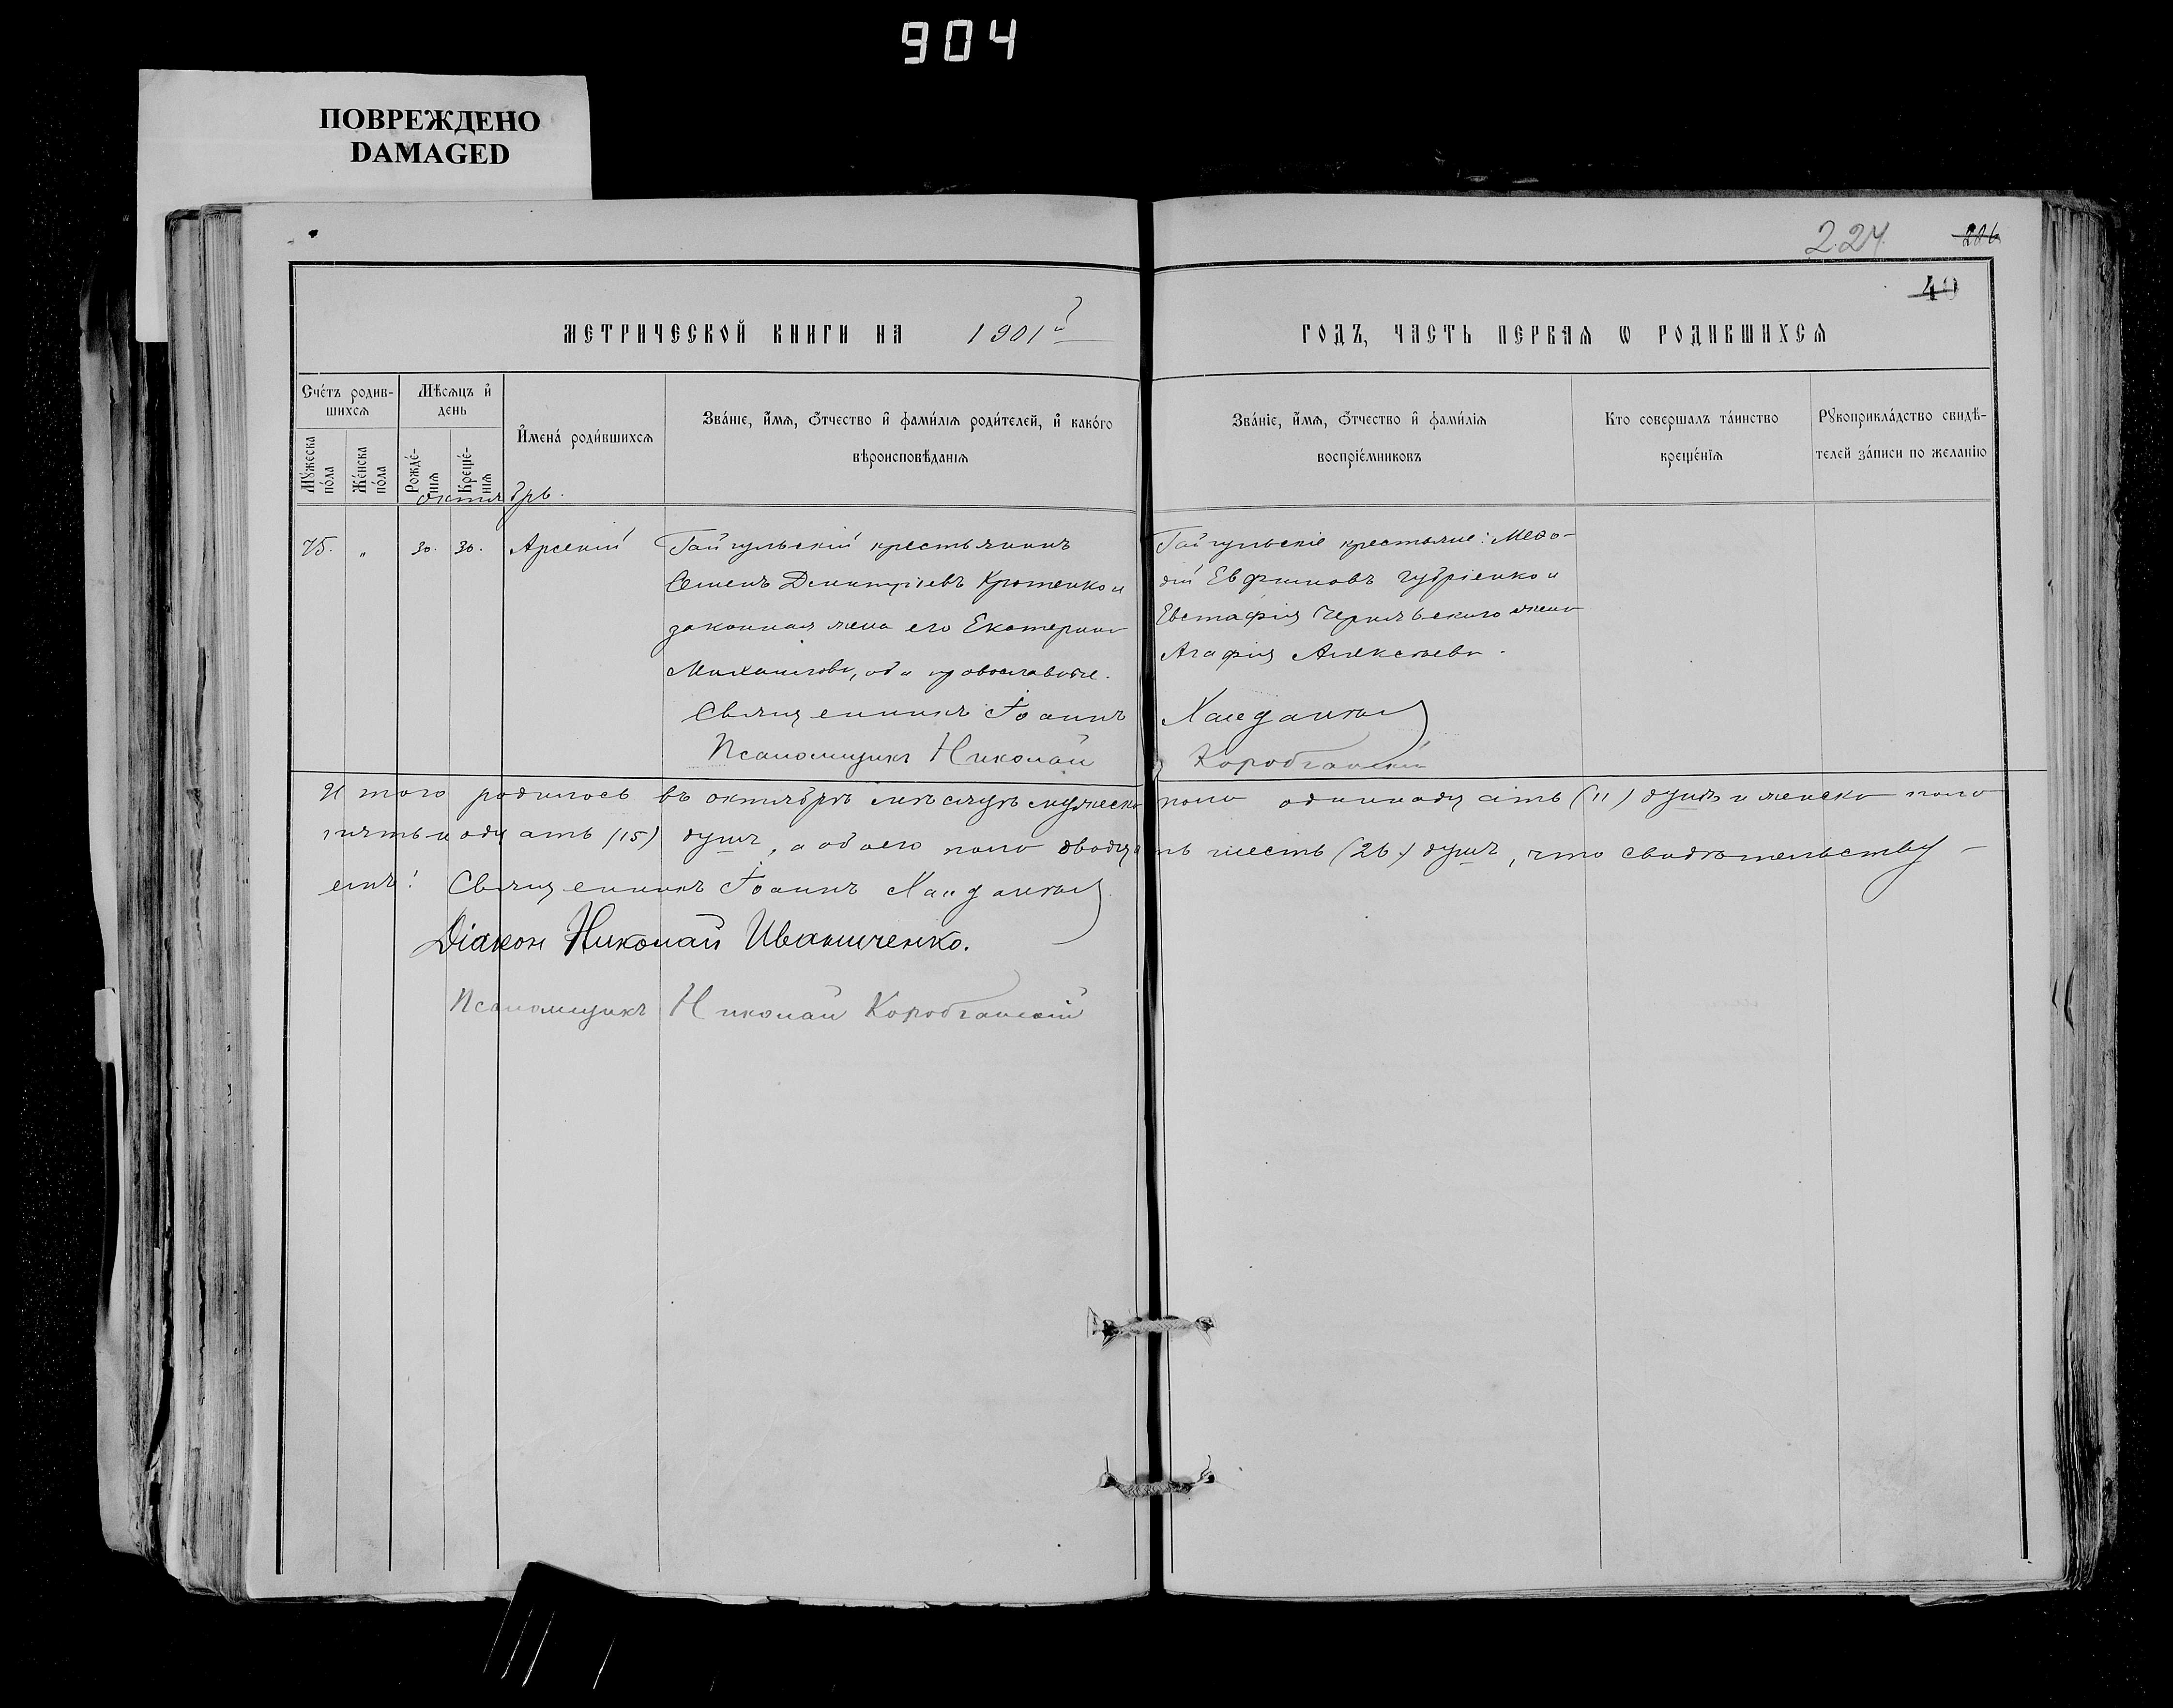 904
ПОВРЕЖДЕНО
DAMAGED
224.
206
40
МЕТРИЧЕСКОЙ КНИГИ НА 1901й ГОДЪ, ЧАСТЬ ПЕРВАЯ Ѡ РОДИВШИХСЯ
Счétъ родив-
шихсѧ
Мѣсѧцъ и҆
день
Мꙋ́жеска по́ла
Же́нска по́ла
Рожде́-
нїѧ
Креще́-
нїѧ
И҆мена̀ роди́вшихсѧ
Зва́нїе, и҆́мѧ, ѻ҆́тчество и҆ фами́лїѧ роди́телей, и҆ како́го
вѣроисповѣ́данїѧ
Зва́нїе, и҆́мѧ, ѻ҆́тчество и҆ фами́лїѧ
воспрїе́мниковъ
Кто соверша́лъ та́инство
креще́нїѧ
Рꙋкоприкла́дство свидѣ́-
телей за́писи по жела́нїю
октябрь.
75. „ 30. 30. Арсеній
Гайгульскій крестьянинъ
Семенъ Димитріевъ Кротенко и
законная жена его Екатерина
Михаилова, оба православные.
Священникъ Іоаннъ
Псаломщикъ Николай
Гайгульскіе крестьяне: Меѳо-
дій Евфимовъ Губріенко и
Евстафія Чернявскаго жена
Агафія Алексѣева.
Коробчанскій
Итого родилось въ октябрѣ мѣсяцѣ мужеска пола одиннадцать (11) душъ и женска пола
пятьнадцать (15) душъ, а обоего пола двадцать шесть (26) душъ, что свидѣтельству-
емъ: Священникъ Іоаннъ
Діакон Николай Иваниченко.
Псаломщикъ Николай Коробчанскій